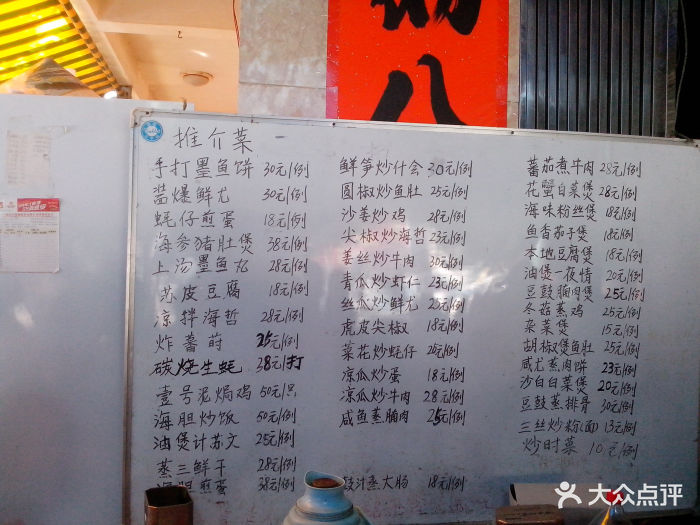 八
推介菜
手打墨鱼饼 30元/例
酱爆鲜尤 30元/例
蚝仔煎蛋 18元/例
海参猪肚煲 38元/例
上汤墨鱼丸 28元/例
皮豆腐 18元/例
凉拌海哲 28元/例
炸蕃莳 25元/例
碳烧生蚝 38元/打
壹号泥焗鸡 50元/只
海胆炒饭 50元/例
油煲计苏文 25元/例
蒸三鲜干 28元/例
海胆煎蛋 38元/例
鲜笋炒什会 30元/例
圆椒炒鱼肚 25元/例
沙姜炒鸡 28元/例
尖椒炒海哲 23元/例
姜丝炒牛肉 30元/例
青瓜炒虾仁 23元/例
丝瓜炒鲜尤 25元/例
虎皮尖椒 18元/例
菜花炒蚝仔 20元/例
凉瓜炒蛋 18元/例
凉瓜炒牛肉 28元/例
咸鱼蒸腩肉 25元/例
豉汁蒸大肠 18元/例
蕃茄煮牛肉 28元/例
花蟹白菜煲 28元/例
海味粉丝煲 18元/例
鱼香茄子煲 18元/例
本地豆腐煲 18元/例
油煲一夜情 20元/例
豆豉腩肉煲 25元/例
冬菇蒸鸡 25元/例
杂菜煲 15元/例
胡椒煲鱼肚 25元/例
咸尤蒸肉饼 23元/例
沙白白菜煲 20元/例
豆豉蒸排骨 30元/例
三丝炒粉(面) 13元/例
炒时菜 10元/例
大众点评